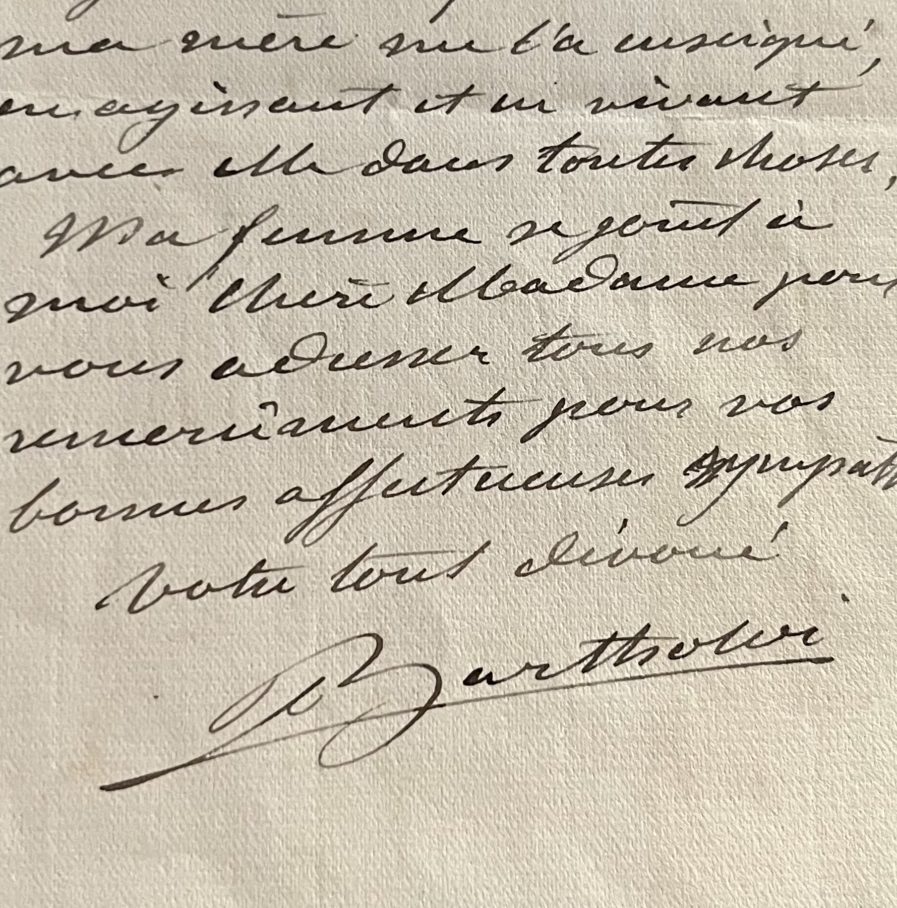 ma mère me l'a enseigné,
en agissant et en vivant
avec elle dans toutes choses,
Ma femme se joint à
moi chère Madame pour
vous adresser tous nos
remercîments pour vos
bonnes affectueuses sympath
Votre tout dévoué
Bartholdi